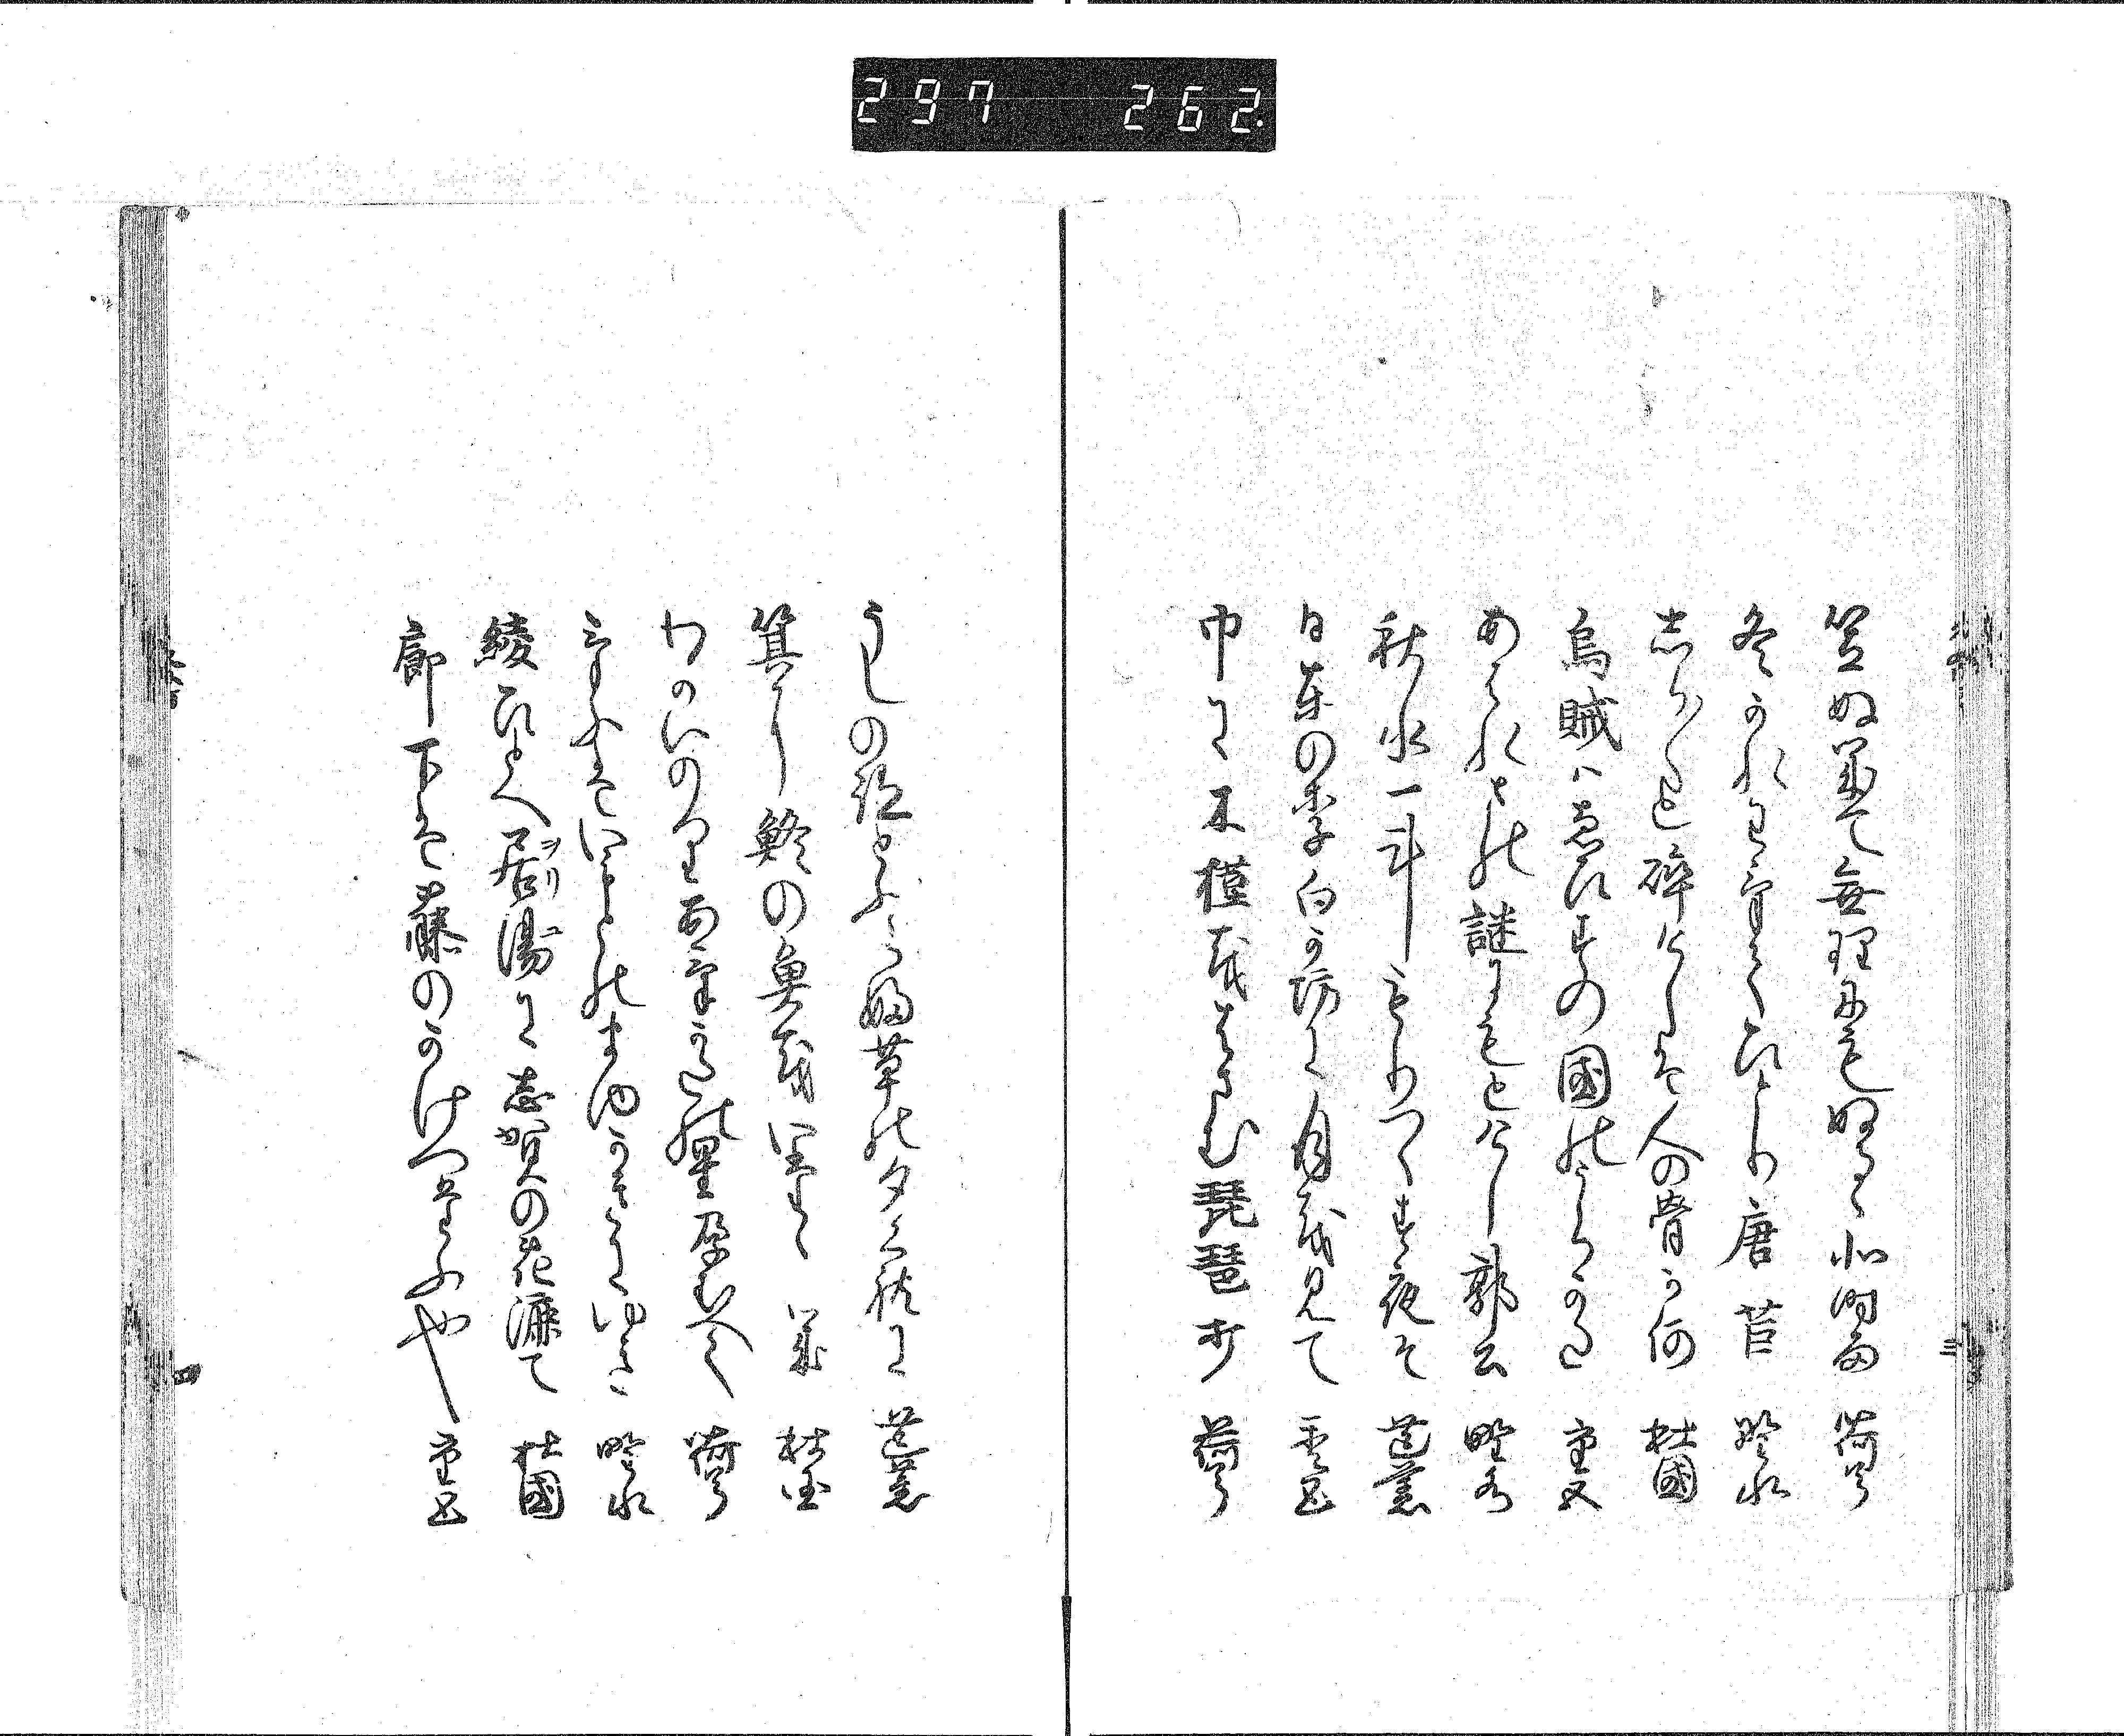 297 262
笠ぬきて無理にもぬるゝ北時雨 荷兮
冬かれわけてひとり唐苣 野水
志ら〱と砕けしは人の骨か何 杜國
烏賊ハゑひすの國のうらかた 重五
あはれさの謎にもとけし郭公 野水
秋水一斗もりつくす夜そ 芭蕉
日東の李白か坊に月を見て 重五
巾に木槿をはさむ琵琶打 荷兮
うしの跡とふらふ草の夕くれに 芭蕉
箕に鮗の魚をいたゝき 杜国
わかいのりあけかたの星孕むへく 荷兮
けふはいもとのまゆかきにゆき 野水
綾ひとへ居湯に志賀の花漉て 杜國
ヲリ
廊下は藤のかけつたふ也 重五